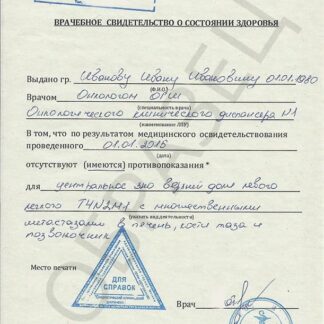 ВРАЧЕБНОЕ СВИДЕТЕЛЬСТВО О СОСТОЯНИИ ЗДОРОВЬЯ
Выдано гр. Иванову Ивану Ивановичу 01.01.1980
(Ф.И.О.)
Врачом Онкологом
(специальность врача)
Онкологического клинического диспансера №1
(наименование ЛПУ)
В том, что по результатом медицинского освидетельствования
проведенного 01.01.2016
(дата)
отсутствуют (имеются) противопоказания *
для центральное зно верхней доли левого
легкого T4N2M1 с множественными
(указать вид деятельности)
метастазами в печень, кости таза и
позвоночник
Место печати
ДЛЯ
СПРАВОК
Врач
ОБРАЗЕЦ